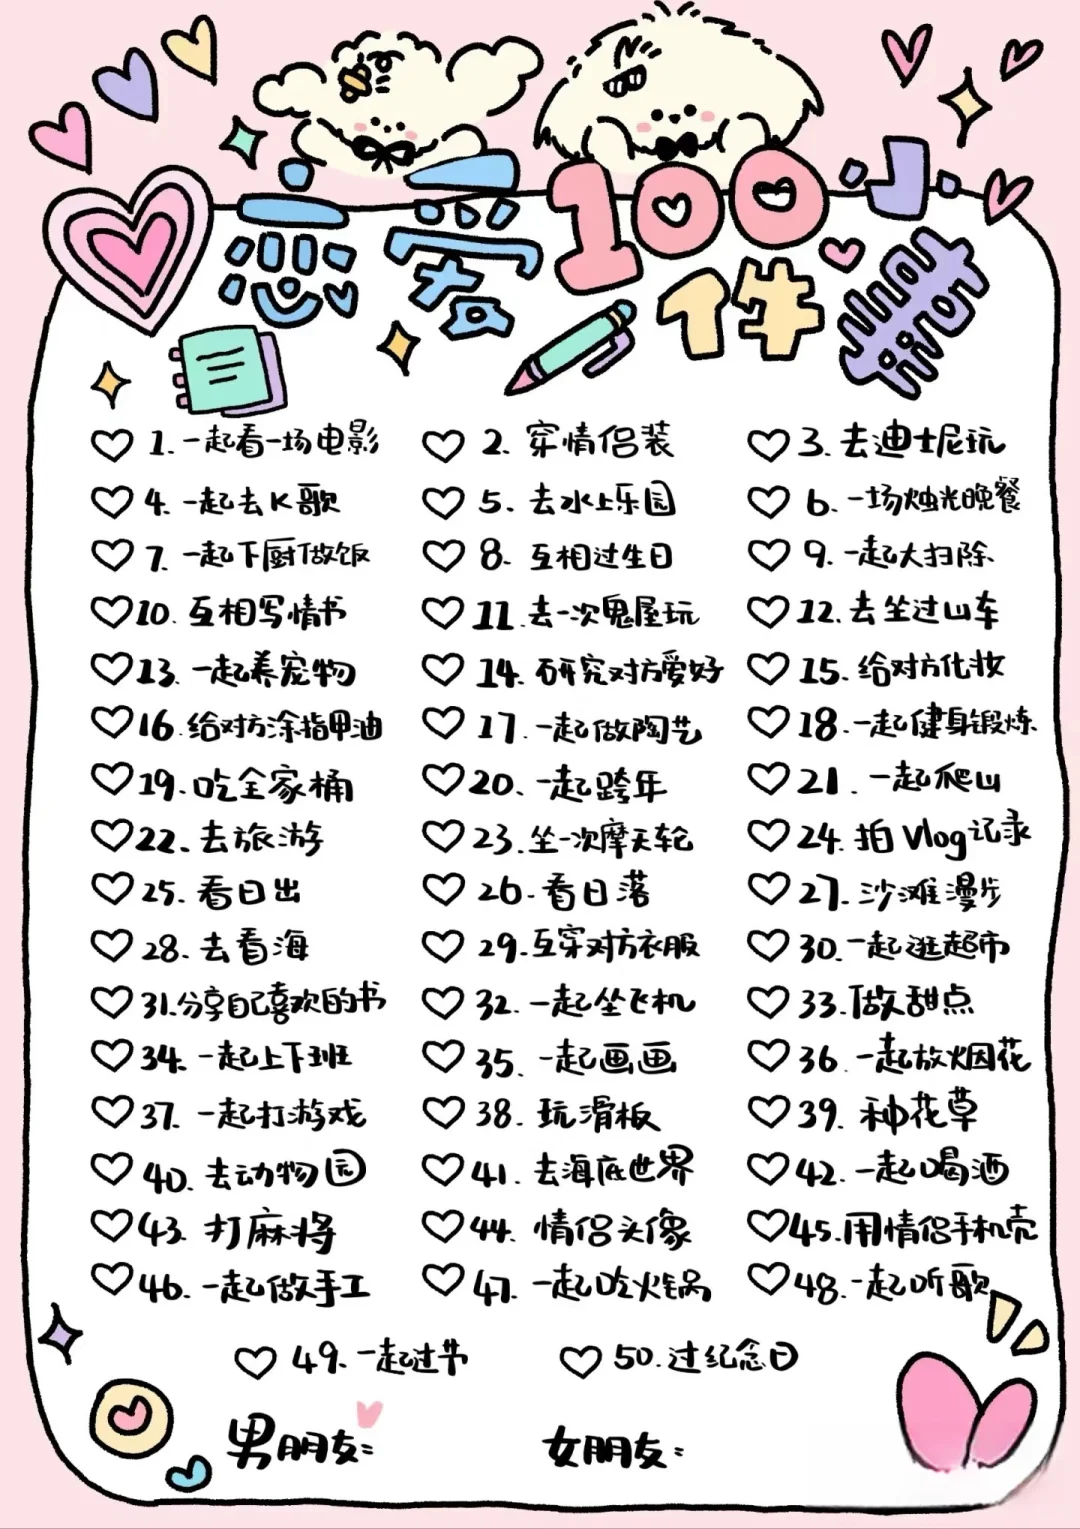 恋爱100小
件事
1.一起看一场电影 2.穿情侣装 3.去迪士尼玩
4.一起去K歌 5.去水上乐园 6.一场烛光晚餐
7.一起下厨做饭 8.互相过生日 9.一起大扫除
10.互相写情书 11.去一次鬼屋玩 12.去坐过山车
13.一起养宠物 14.研究对方爱好 15.给对方化妆
16.给对方涂指甲油 17.一起做陶艺 18.一起健身锻炼
19.吃全家桶 20.一起跨年 21.一起爬山
22.去旅游 23.坐一次摩天轮 24.拍Vlog记录
25.看日出 26.看日落 27.沙滩漫步
28.去看海 29.互穿对方衣服 30.一起逛超市
31.分享自己喜欢的书 32.一起坐飞机 33.做甜点
34.一起上下班 35.一起画画 36.一起放烟花
37.一起打游戏 38.玩滑板 39.种花草
40.去动物园 41.去海底世界 42.一起喝酒
43.打麻将 44.情侣头像 45.用情侣手机壳
46.一起做手工 47.一起吃火锅 48.一起听歌
49.一起过节 50.过纪念日
男朋友: 女朋友: